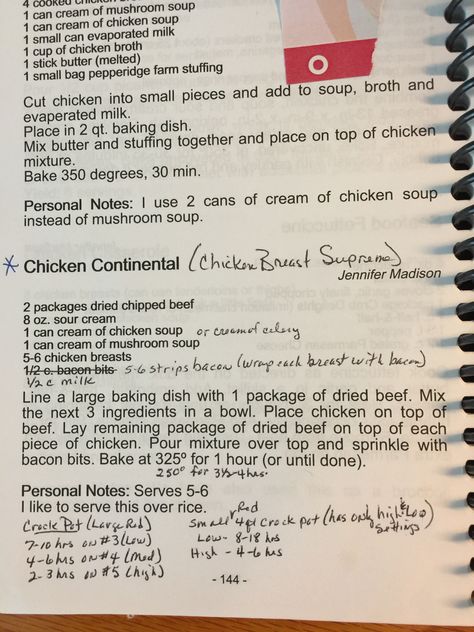 4 cooked chicken
1 can cream of mushroom soup
1 can cream of chicken soup
1 small can evaporated milk
1 cup of chicken broth
1 stick butter (melted)
1 small bag pepperidge farm stuffing
Cut chicken into small pieces and add to soup, broth and
evaporated milk.
Place in 2 qt. baking dish.
Mix butter and stuffing together and place on top of chicken
mixture.
Bake 350 degrees, 30 min.
Personal Notes: I use 2 cans of cream of chicken soup
instead of mushroom soup.
* Chicken Continental (Chicken Breast Supreme)
Jennifer Madison
2 packages dried chipped beef
8 oz. sour cream
1 can cream of chicken soup or cream of celery
1 can cream of mushroom soup
5-6 chicken breasts
1/2 c. bacon bits 5-6 strips bacon (wrap each breast with bacon)
1/2 c milk
Line a large baking dish with 1 package of dried beef. Mix
the next 3 ingredients in a bowl. Place chicken on top of
beef. Lay remaining package of dried beef on top of each
piece of chicken. Pour mixture over top and sprinkle with
bacon bits. Bake at 325° for 1 hour (or until done).
250° for 3½-4 hrs.
Personal Notes: Serves 5-6
I like to serve this over rice.
Crock Pot (Large Red)
7-10 hrs on #3 (Low)
4-6 hrs on #4 (Med)
2-3 hrs on #5 (high)
Small Red 4qt crock pot (has only high & Low)
Settings
Low - 8-18 hrs
High - 4-6 hrs
- 144 -